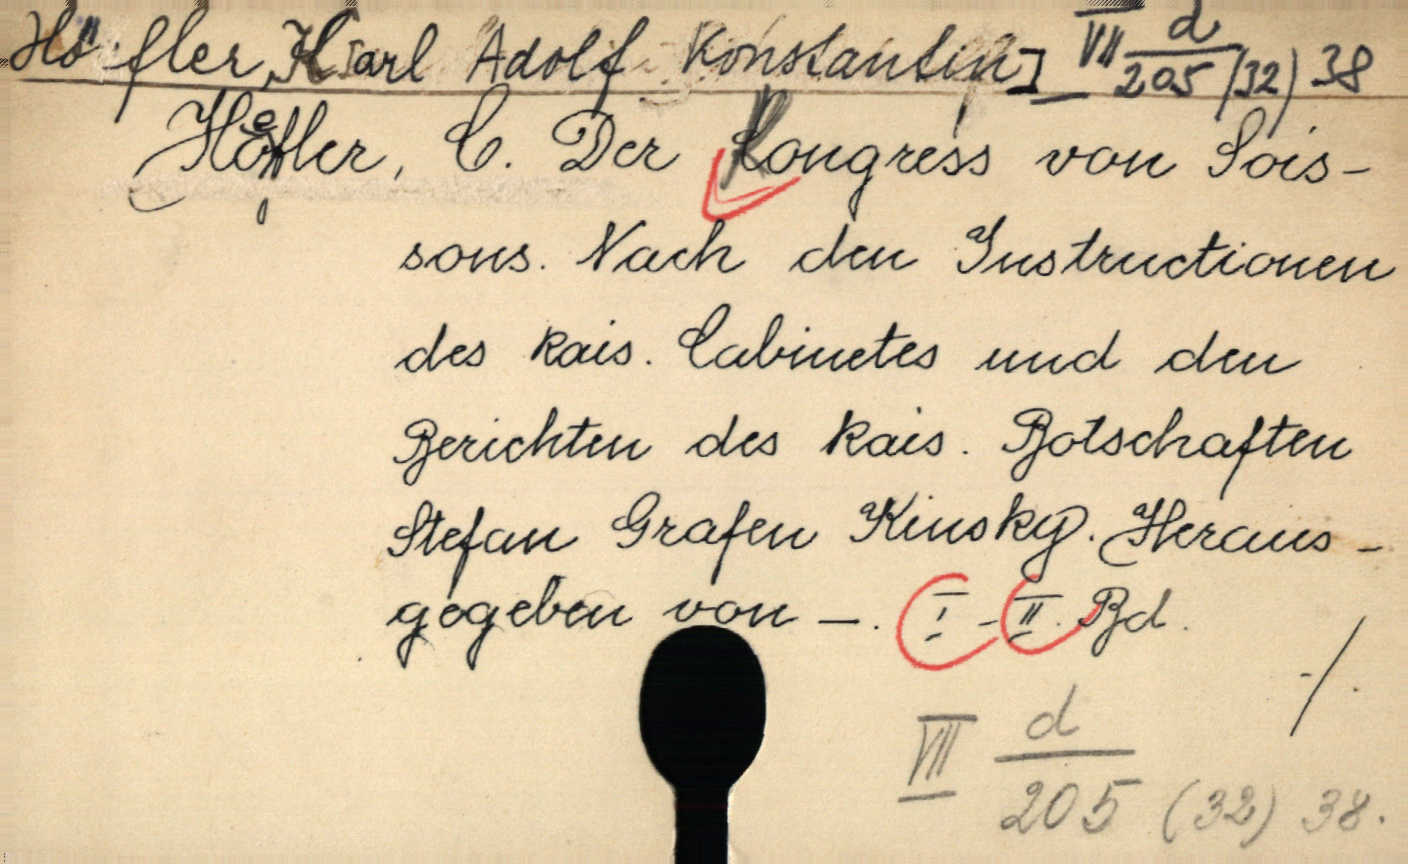 Höfler, K[arl Adolf Konstantin] VII d/205 (32) 38
Höfler, C. Der Kongress von Sois-
sons. Nach den Instructionen
des kais. Cabinetes und den
Berichten des kais. Botschaften
Stefan Grafen Kinsky. Heraus-
gegeben von —. I-II. Bd.
./.
VIII d/205 (32) 38.